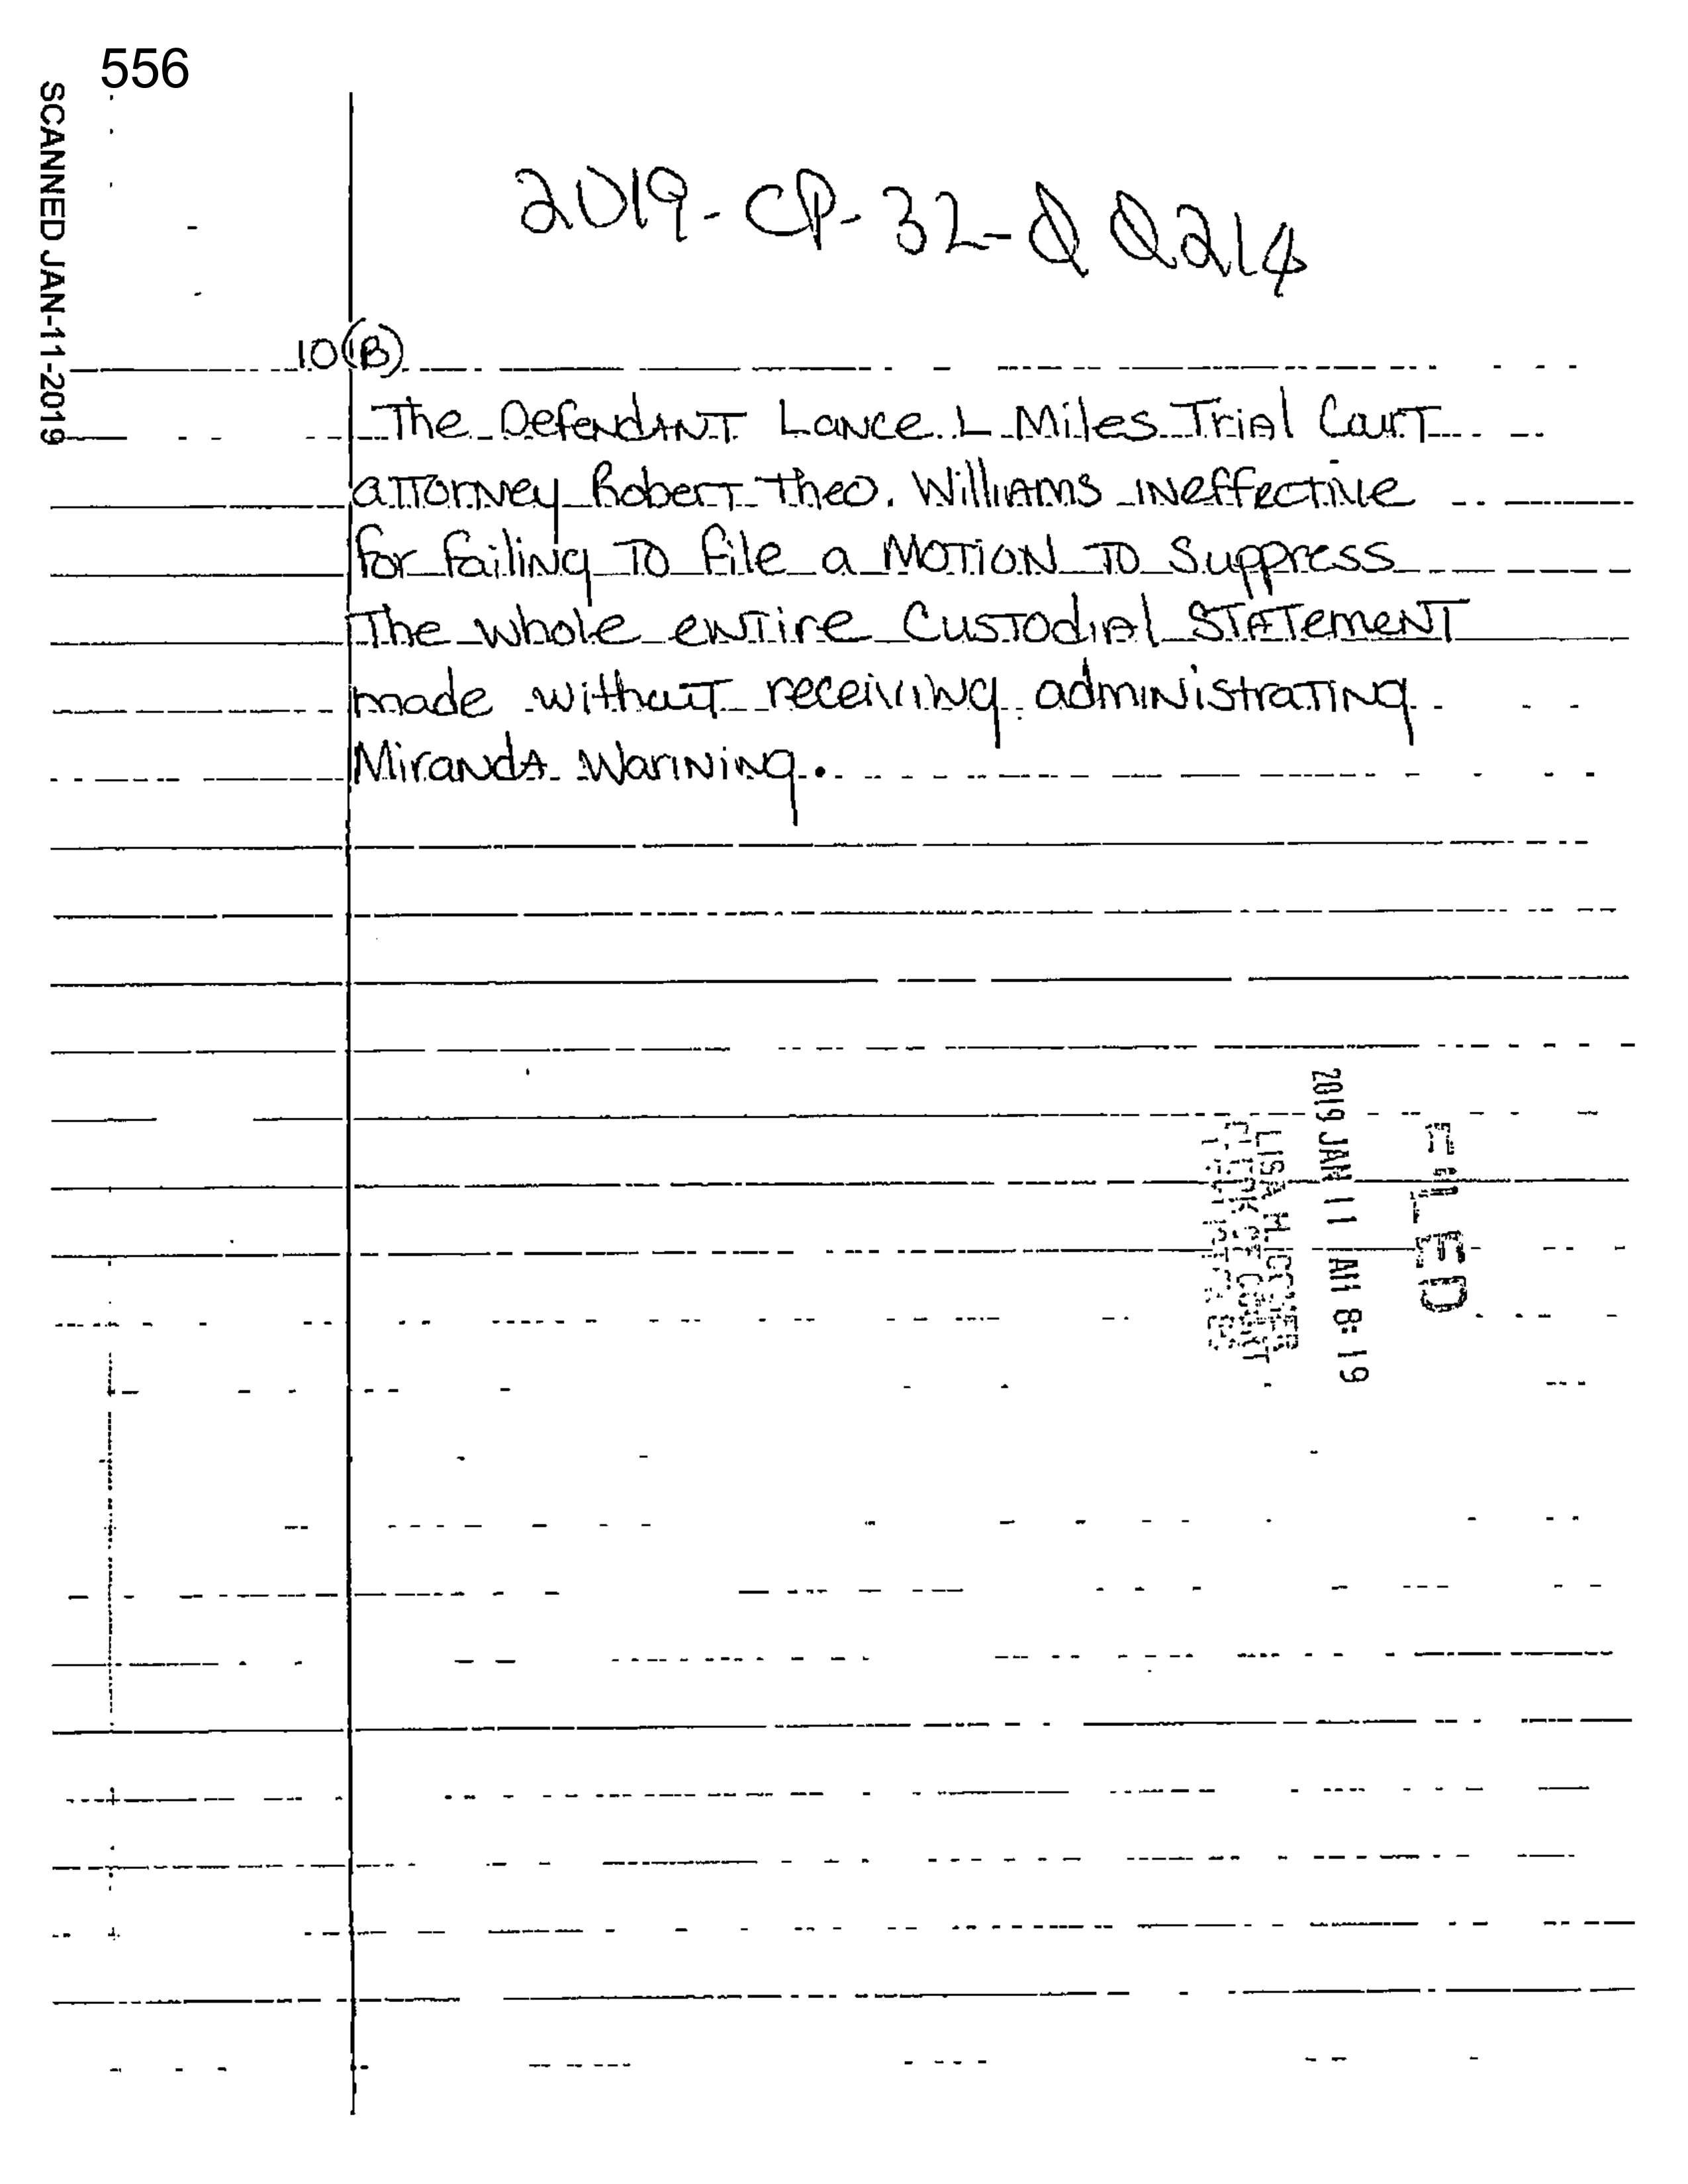 556
SCANNED JAN-11-2019
2019-CP-32-00214
10(B)
The Defendant Lance L Miles Trial Court
attorney Robert Theo. Williams ineffective
for failing To file a Motion To Suppress
The whole entire Custodial Statement
made without receiving administrating
Miranda Warining.
FILED
2019 JAN 11 AM 8:19
LISA M. COMER
CLERK OF COURT